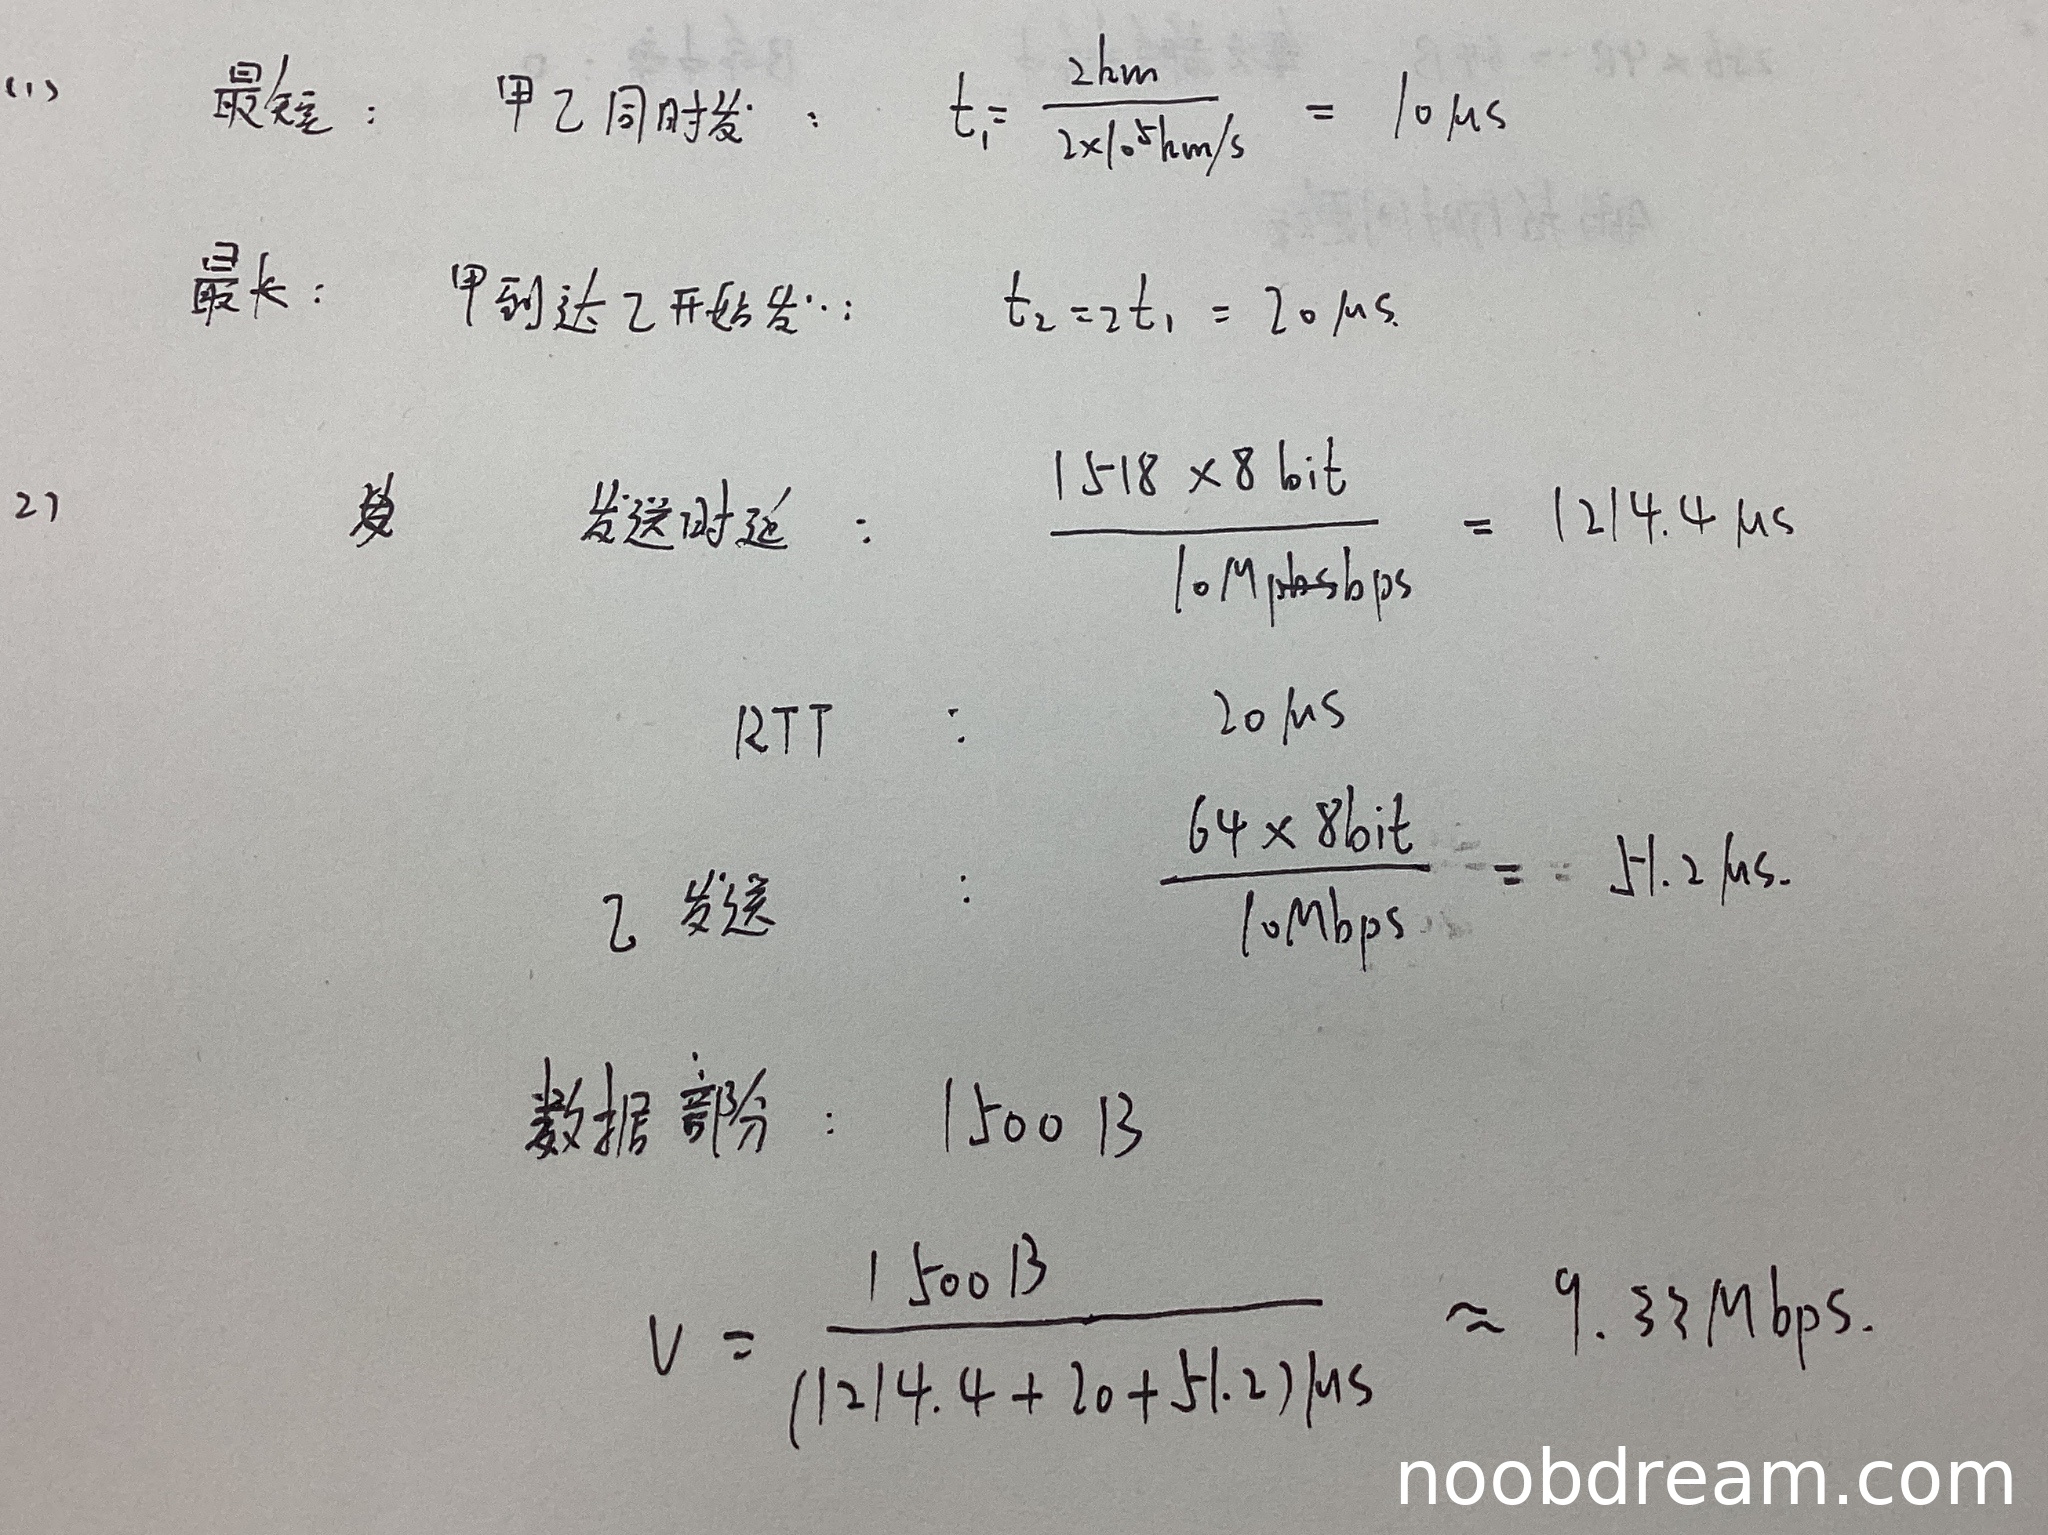 (1) 最短: 甲乙同时发: t₁= 2km / 2×10⁵km/s = 10μs
最长: 甲到达乙开始发: t₂=2t₁ = 20μs.
2) 发送时延: 1518×8bit / 10Mbps = 1214.4μs
RTT : 20μs
乙 发送 : 64×8bit / 10Mbps = 51.2μs.
数据部分: 1500B
V = 1500B / (1214.4+20+51.2)μs ≈ 9.33Mbps.
noobdream.com